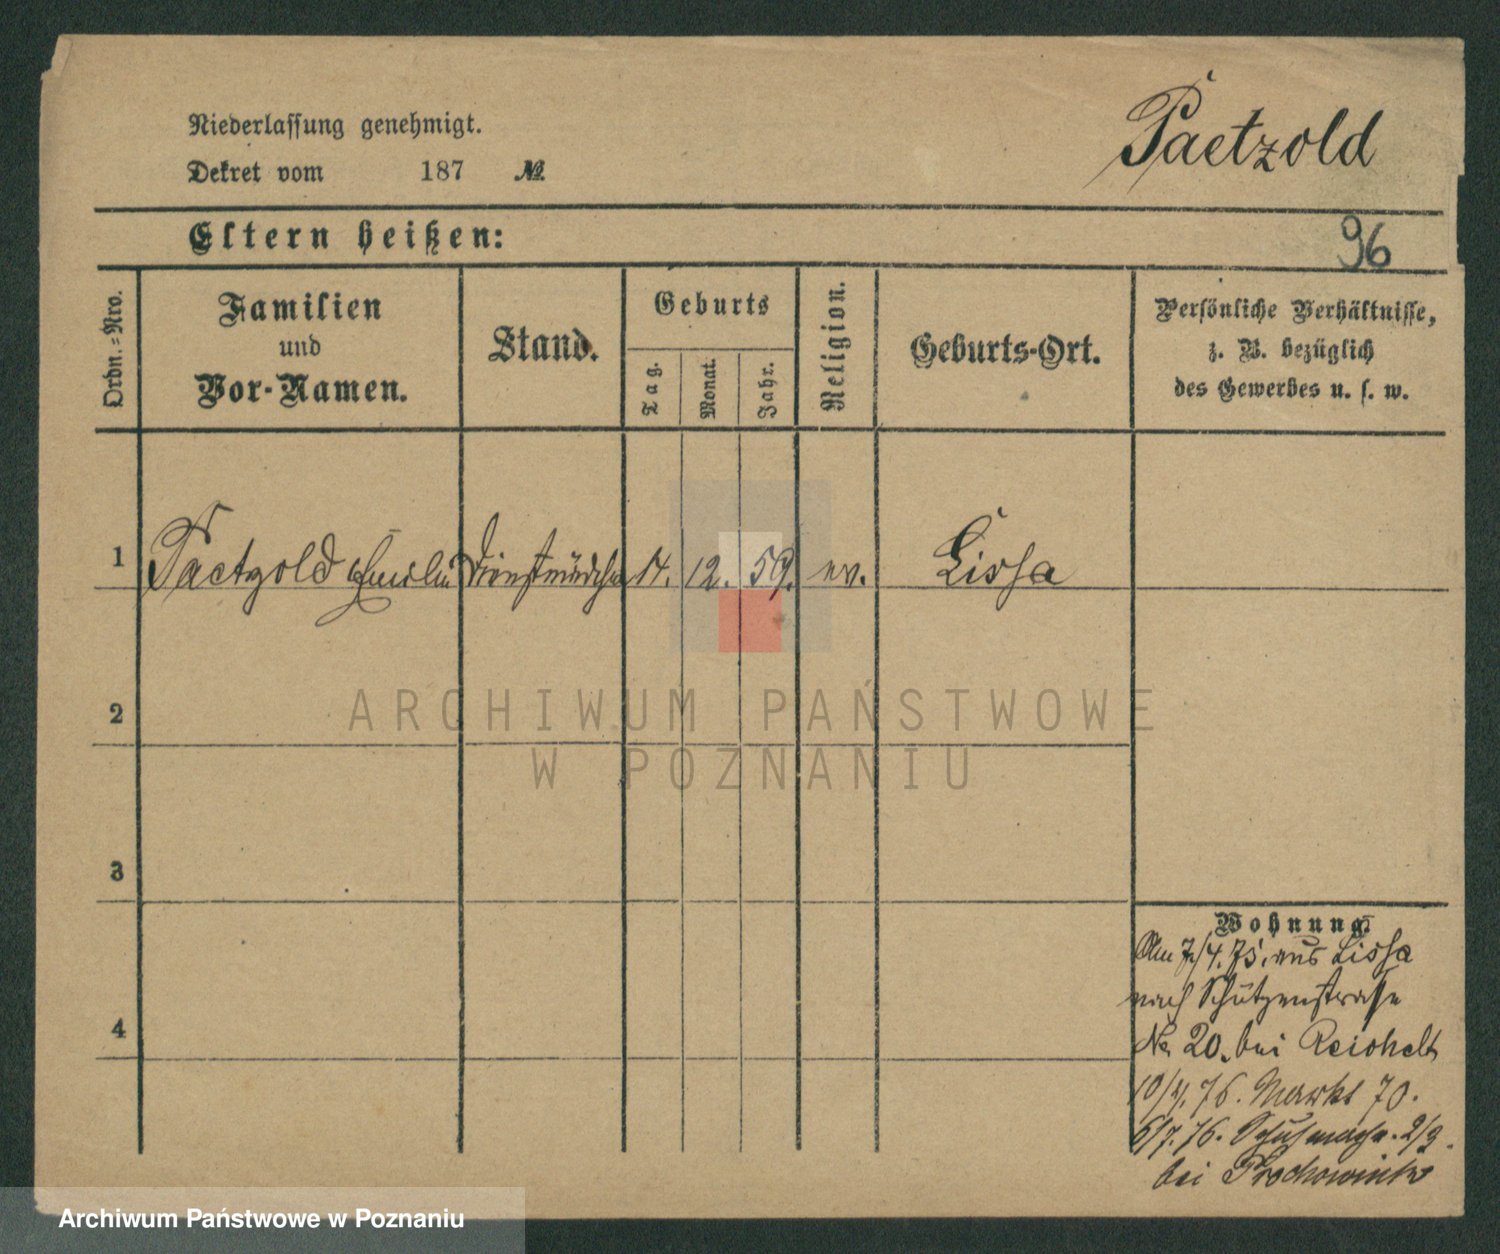 Niederlassung genehmigt.
Paetzold
Dekret vom 187 №
Eltern heißen:
96
Ordn.=Nro.
Familien
und
Vor-Namen.
Stand.
Geburts
Tag.
Monat.
Jahr.
Religion.
Geburts-Ort.
Persönliche Verhältnisse,
z. B. bezüglich
des Gewerbes u. s. w.
1 Paetzold Emilie Dienstmädchen 14. 12. 59. ev. Lissa
2
3
4
Wohnung
Am 7/4. 75. aus Lissa
nach Schützenstrasse
No 20. bei Reichelt
10/4. 76. Markt 70.
6/7. 76. Schuhmach. 2/3.
bei
ARCHIWUM PAŃSTWOWE
W POZNANIU
Archiwum Państwowe w Poznaniu